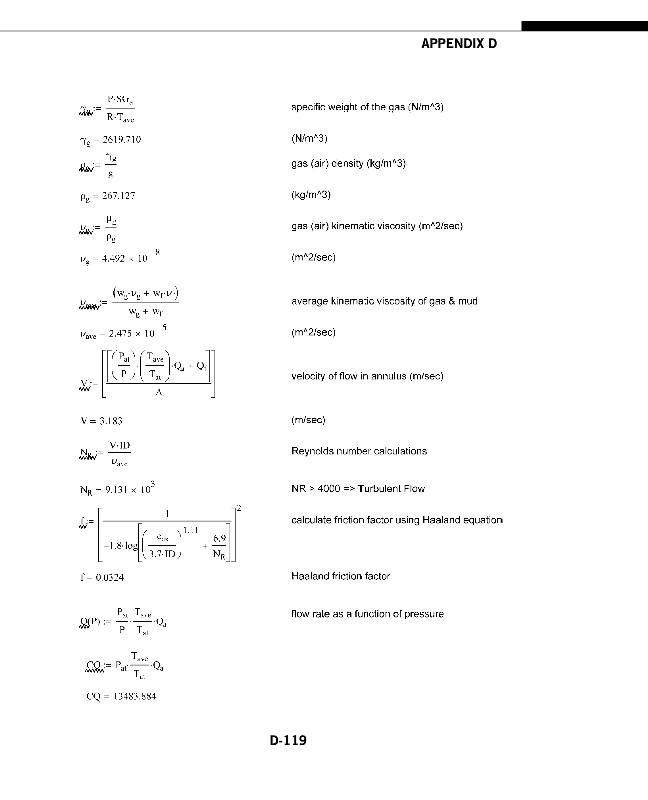 APPENDIX D
γg := P·SGg / R·Tave specific weight of the gas (N/m^3)
γg = 2619.710 (N/m^3)
ρg := γg / g gas (air) density (kg/m^3)
ρg = 267.127 (kg/m^3)
νg := μg / ρg gas (air) kinematic viscosity (m^2/sec)
νg = 4.492 × 10^-8 (m^2/sec)
νave := (wg·νg + wf·νf) / wg + wf average kinematic viscosity of gas & mud
νave = 2.475 × 10^-5 (m^2/sec)
V := [[(Pat / P)·(Tave / Tat)·Qa + Qf] / A] velocity of flow in annulus (m/sec)
V = 3.183 (m/sec)
NR := V·ID / νave Reynolds number calculations
NR = 9.131 × 10^3 NR > 4000 => Turbulent Flow
f := [1 / -1.8·log[(eds / 3.7·ID)^1.11 + 6.9 / NR]]^2 calculate friction factor using Haaland equation
f = 0.0324 Haaland friction factor
Q(P) := Pat / P · Tave / Tat ·Qa flow rate as a function of pressure
CQ := Pat· Tave / Tat ·Qa
CQ = 13483.884
D-119